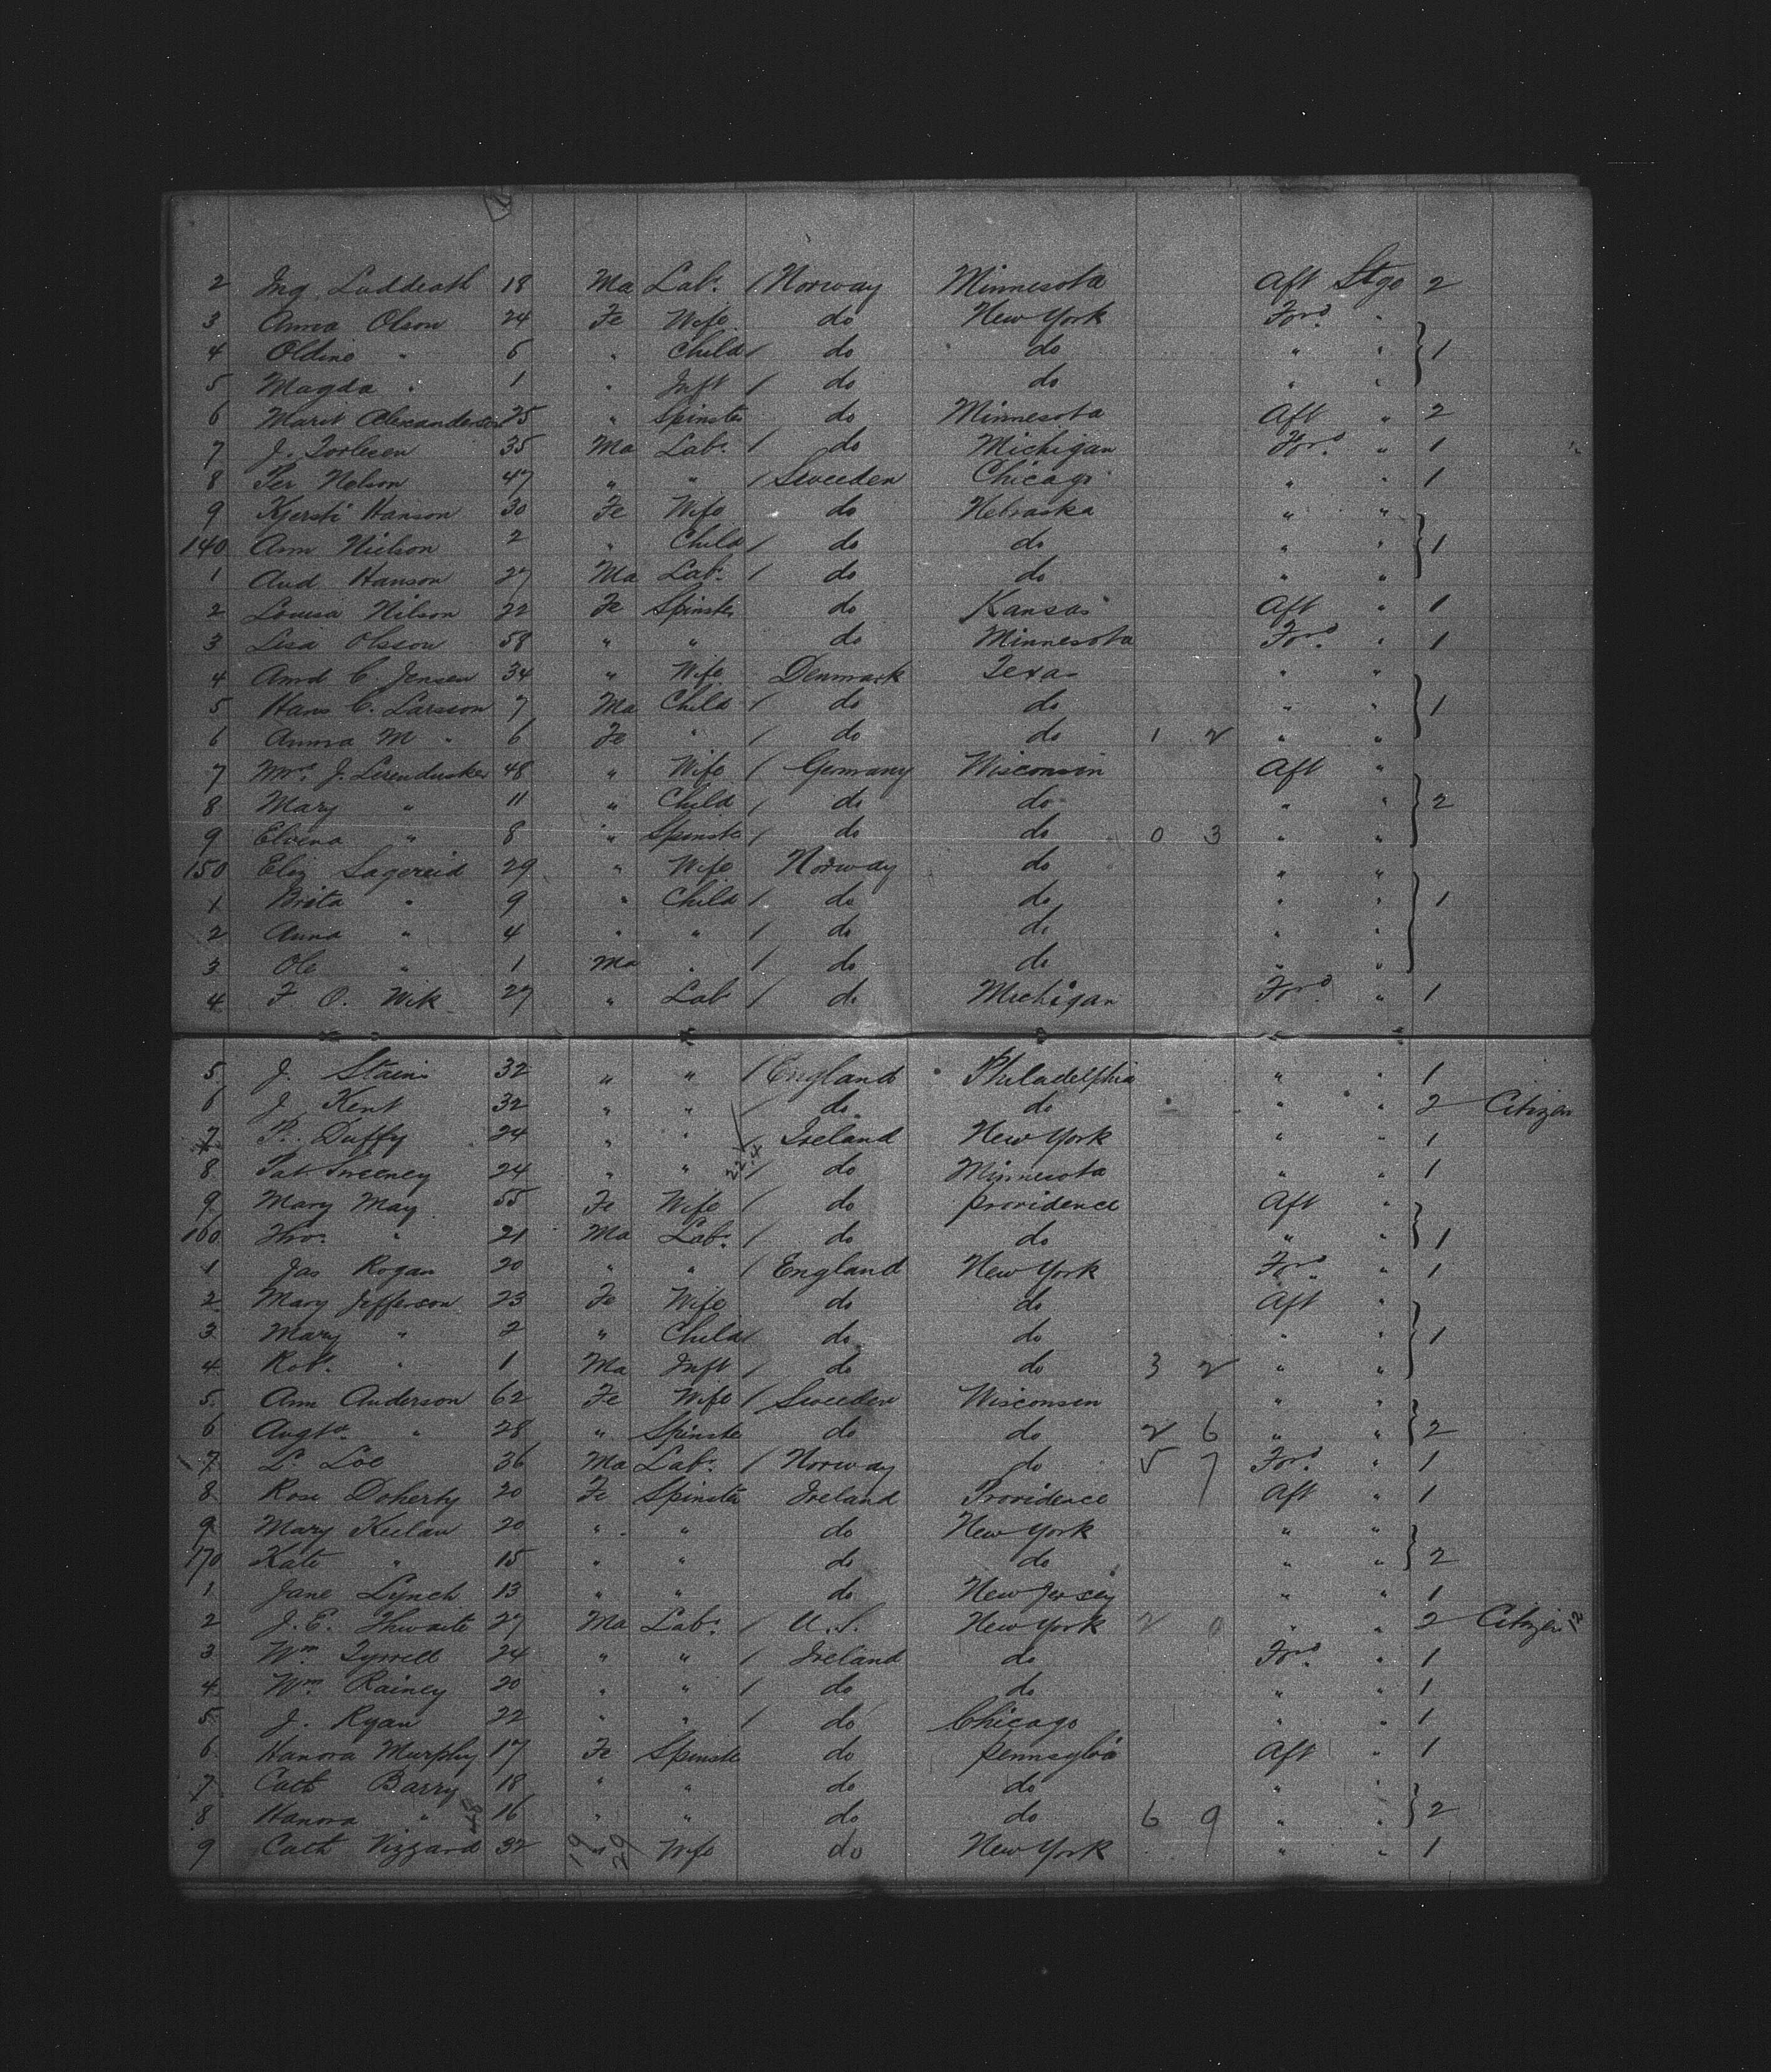 2 Ing. Laddeath 18 Ma Labr. / Norway Minnesota Aft Stge 2
3 Anna Olson 24 Fe Wife do New York Ford "
4 Oldine " 6 " Child / do do " " } 1
5 Magda " 1 " Inft / do do " "
6 Marit Alexandersen 25 " Spinster do Minnesota Aft " 2
7 J. Torlesen 35 Ma Labr. / do Michigan Ford " 1
8 Per Nelson 47 " " / Sweeden Chicago " " 1
9 Kjersti Hanson 30 Fe Wife do Nebraska " "
140 Ann Nielson 2 " Child / do do " " } 1
1 And Hanson 27 Ma Labr. / do do " "
2 Louisa Nilson 22 Fe Spinster do Kansas Aft " 1
3 Lisa Olsson 58 " " do Minnesota Ford " 1
4 And C. Jensen 34 " Wife Denmark Texas " "
5 Hans C. Larsson 7 Ma Child / do do " " } 1
6 Anna M " 6 Fe " / do do 1 2 " "
7 Mrs. J. 48 " Wife / Germany Wisconsin Aft "
8 Mary " 11 " Child / do do " " } 2
9 Elvina " 8 " Spinster / do do 0 3 " "
150 Eliz Sagereid 29 " Wife Norway do " "
1 Brita " 9 " Child / do do " " } 1
2 Anna " 4 " " / do do " "
3 Ole " 1 Ma " / do do " "
4 F O. Wik 27 " Lab / do Michigan Ford " 1
5 J. Stains 32 " " / England Philadelphia " " 1
6 J. Kent 32 " " / do do " " 2 Citizen
7 P. Duffy 24 " " / Ireland New York " " 1
8 Pat Sweeney 24 " " / do Minnesota " " 1
9 Mary May 55 Fe Wife / do Providence Aft "
160 Thos. " 21 Ma Labr. / do do " " } 1
1 Jas Rogan 20 " " / England New York Ford " 1
2 Mary Jefferson 23 Fe Wife do do Aft "
3 Mary " 2 " Child / do do " " } 1
4 Robt. " 1 Ma Inft / do do 3 2 " "
5 Ann Anderson 62 Fe Wife / Sweeden Wisconsin " "
6 Augta. " 28 " Spinster do do 2 6 " " } 2
7 L. Loe 36 Ma Labr. / Norway do 5 7 Ford " 1
8 Rose Doherty 20 Fe Spinster Ireland Providence Aft " 1
9 Mary Keelan 20 " " do New York " "
170 Kate " 15 " " do do " " } 2
1 Jane Lynch 13 " " do New Jersey " " 1
2 J. E. Thwaite 27 Ma Labr. / U.S. New York 2 0 " " 2 Citizen
3 Wm. Tyrrell 24 " " / Ireland do Ford " 1
4 Wm. Rainey 20 " " / do do " " 1
5 J. Ryan 22 " " / do Chicago " " 1
6 Hanora Murphy 17 Fe Spinster do Pennsylva Aft " 1
7 Cath Barry 18 " " do do " "
8 Hanora " 16 " " do do 6 9 " " } 2
9 Cath Vizzard 32 " Wife do New York " " 1